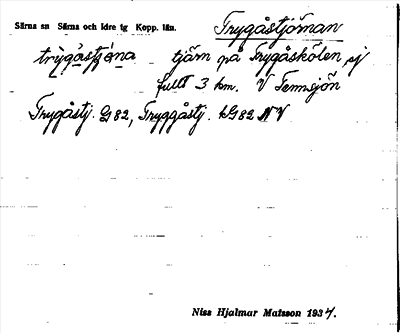 Särna sn Särna och Idre tg Kopp. län. Trygåstjörnan
trỳgåstjə́na tjärn på Trygåskölen, sj
fullt 3 km. V Temnsjön
Trygåstj. G82, Tryggåstj. kG82 NV
Niss Hjalmar Matsson 1934.